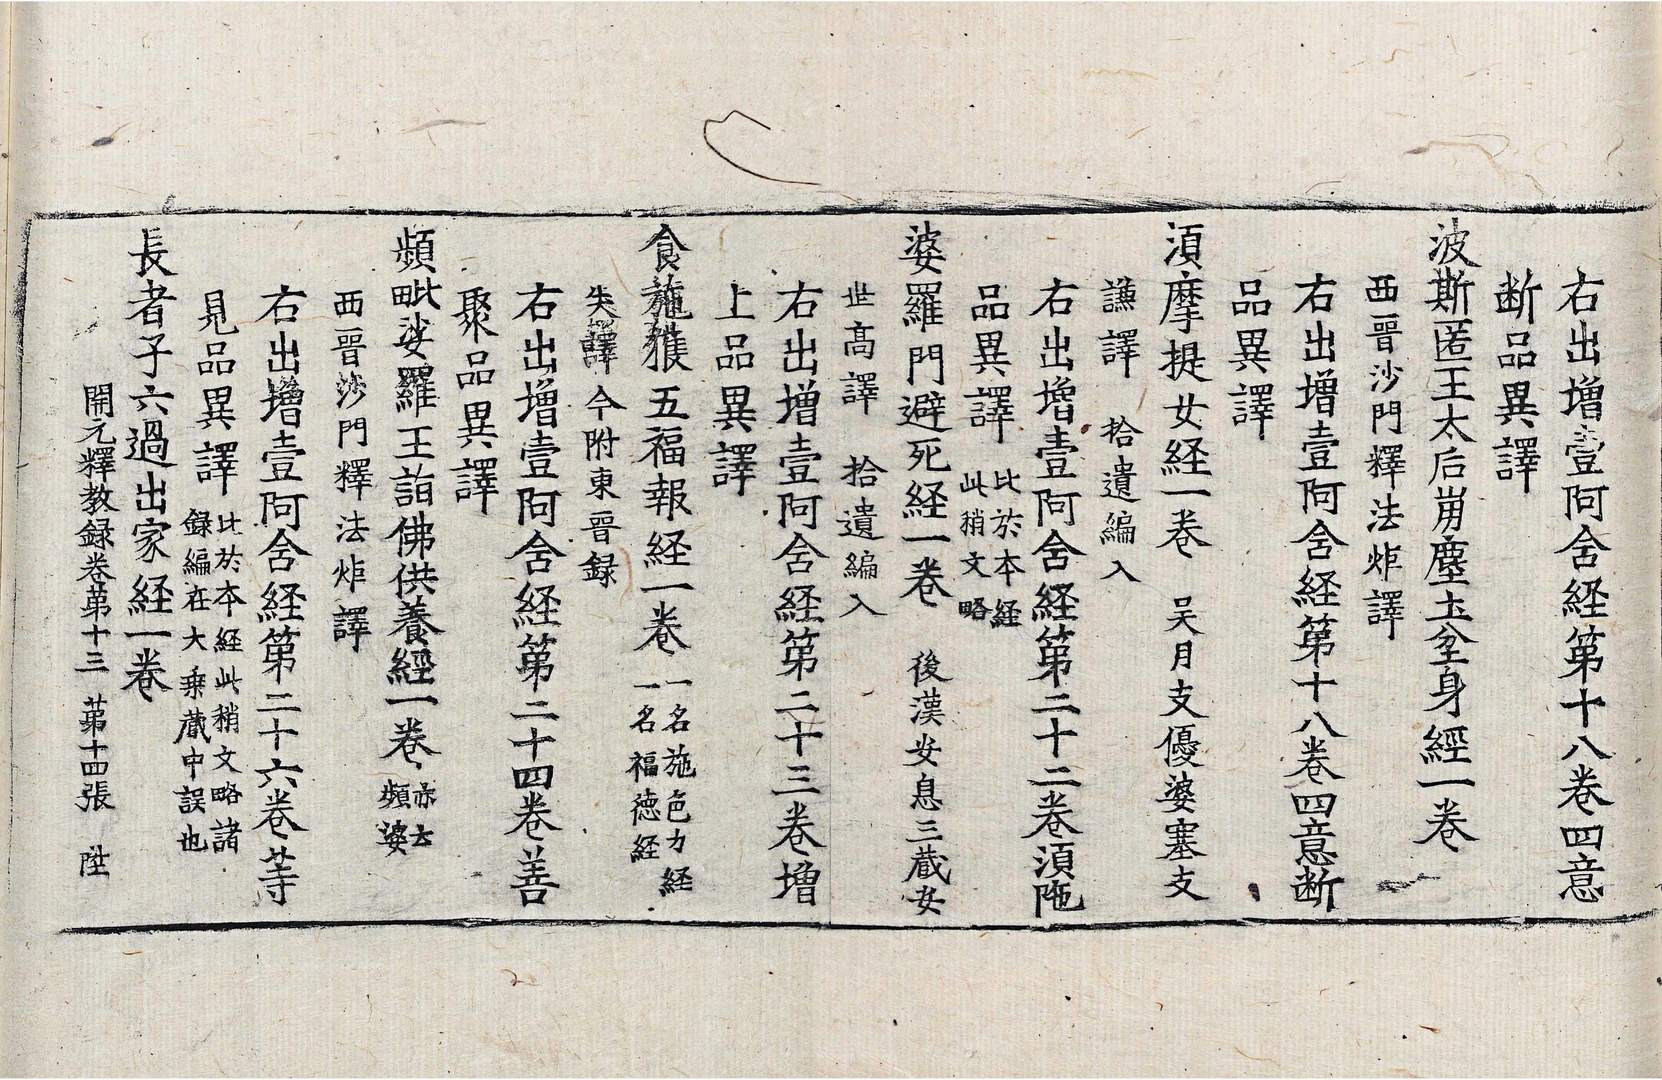 右出增壹阿含経第十八卷四意
断品異譯
波斯匿王太后崩塵土坌身經一卷
西晋沙門釋法炬譯
右出增壹阿含経第十八卷四意断
品異譯
湏摩提女経一卷 吴月支優婆塞支
謙譯 拾遺編入
右出增壹阿含経第二十二卷湏陁
品異譯 比於本経
此稍文略
婆羅門避死経一卷 後漢安息三蔵安
世髙譯 拾遺編入
右出增壹阿含経第二十三卷增
上品異譯
食施獲五福報経一卷 一名施色力経
一名福徳経
失譯今附東晋録
右出增壹阿含経第二十四卷善
聚品異譯
頻毗娑羅王詣佛供養經一卷 亦云
頻婆
西晋沙門釋法炬譯
右出增壹阿含経第二十六卷䓁
見品異譯 比於本経此稍文略諸
録編在大乗蔵中誤也
長者子六過出家経一卷
開元釋教録卷第十三 第十四張 陞